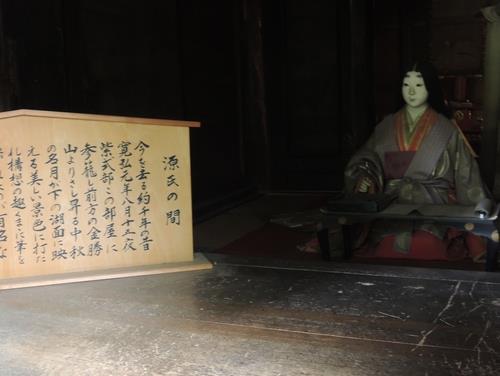 源氏の間
今を去る約千年の昔
寛弘元年八月十五夜
紫式部この部屋に
参籠し前方の金勝
山よりさし昇る中秋
の名月が下の湖面に映
える美しい景色に打た
れ構想の趣くまゝに筆を
有名な